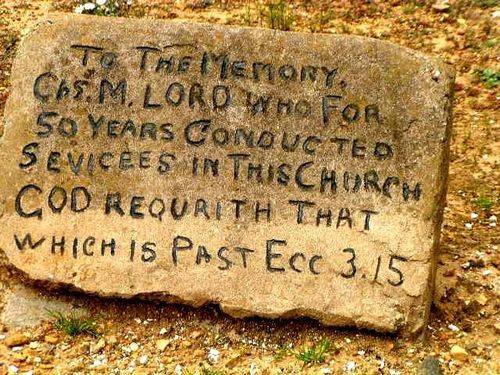 TO THE MEMORY.
Chs. M. LORD WHO FOR
50 YEARS CONDUCTED
SEVICEES IN THIS CHURCH
GOD REQURITH THAT
WHICH IS PAST ECC 3.15